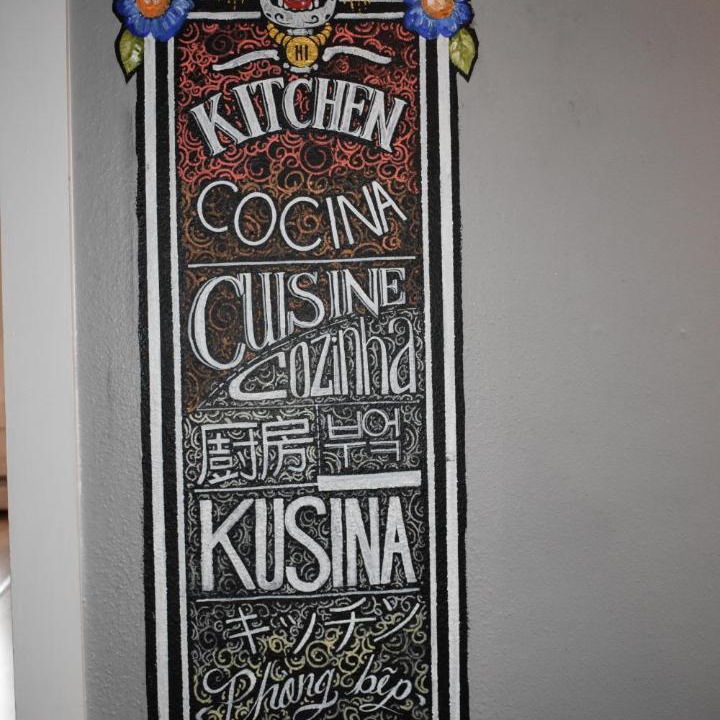 HI
KITCHEN
COCINA
CUISINE
Cozinha
廚房 부억
KUSINA
キッチン
Phong bếp